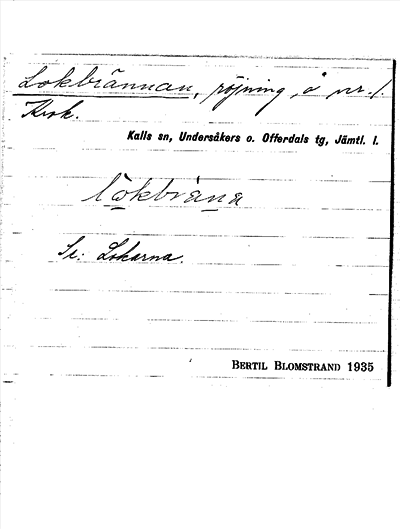 Lokbrännan, röjning, å nr. 1.
Krok.
Kalls sn, Undersåkers o. Offerdals tg, Jämtl. l.
lo̲kbräṉa
Se: Lokarna.
BERTIL BLOMSTRAND 1935